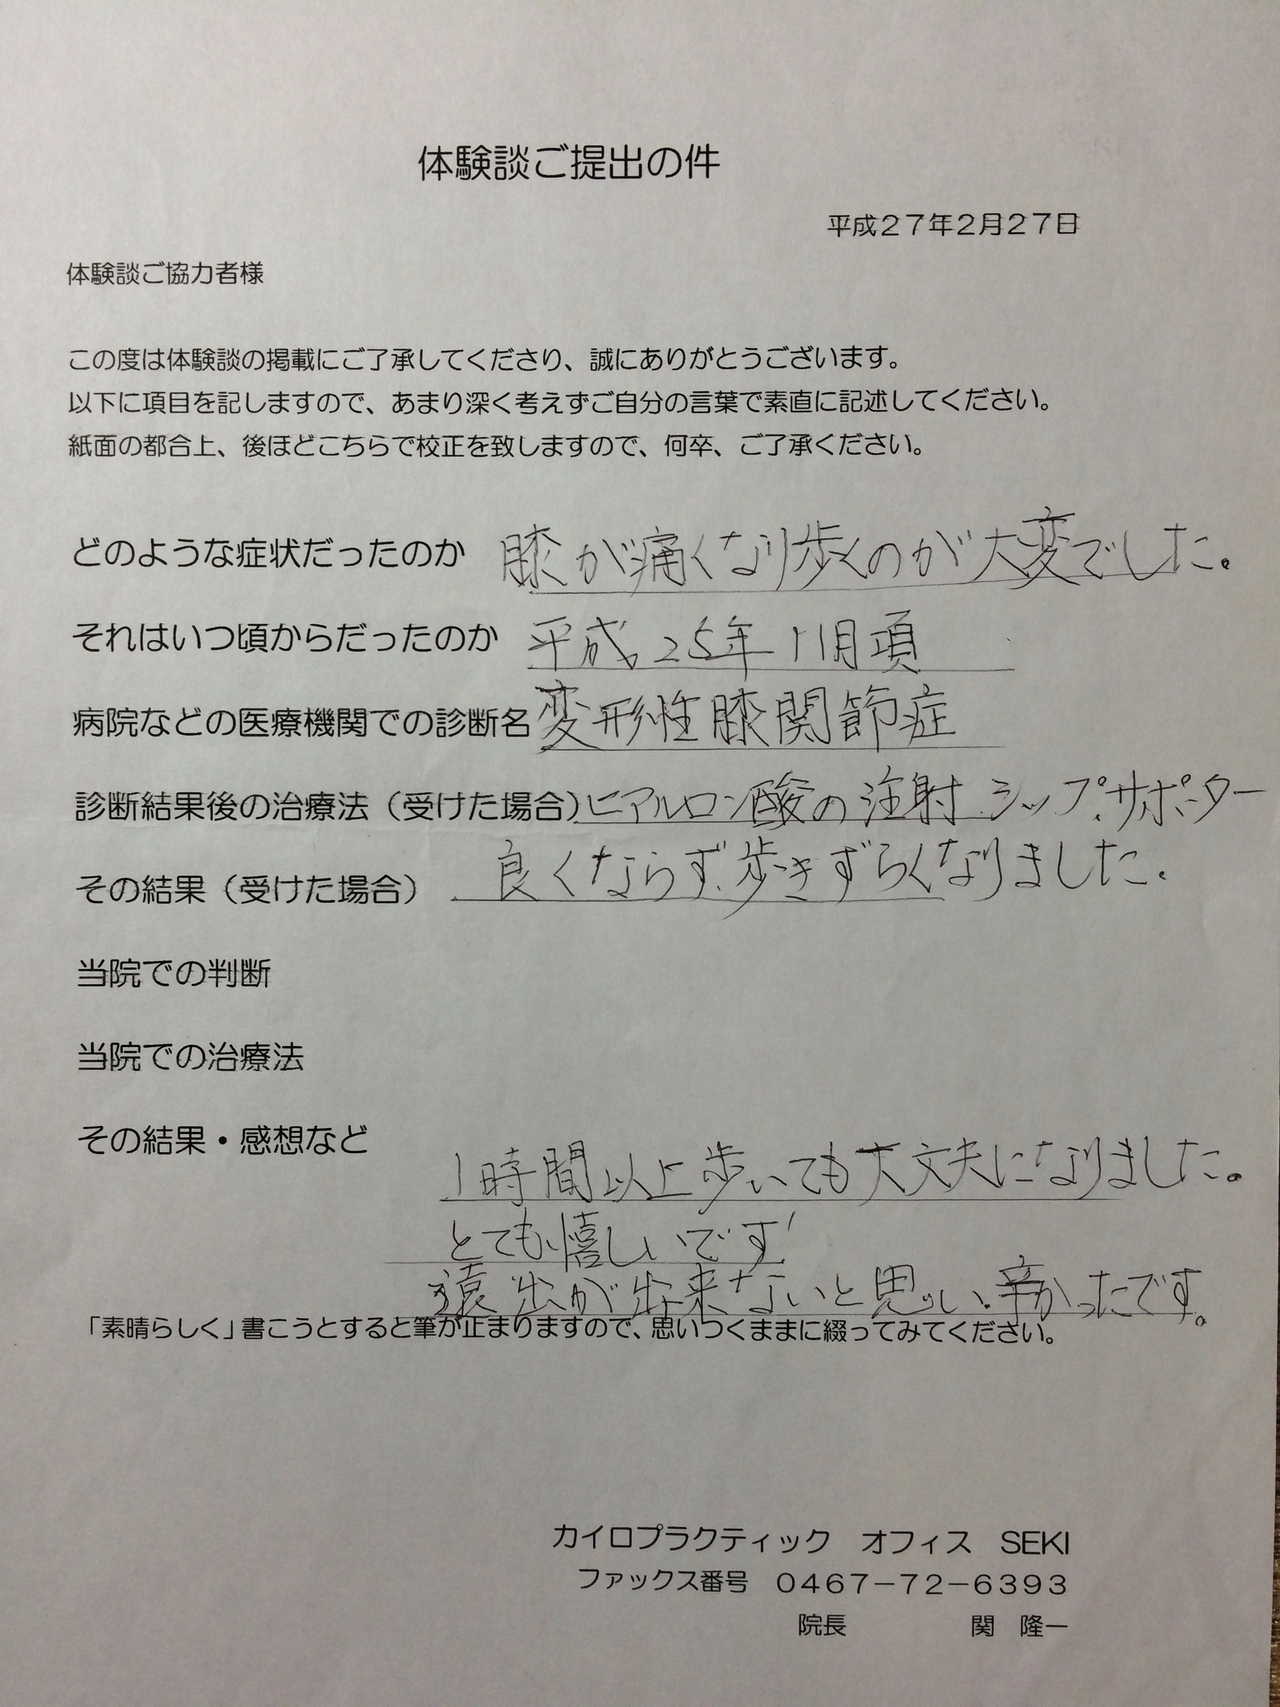 体験談ご提出の件
平成27年2月27日
体験談ご協力者様
この度は体験談の掲載にご了承してくださり、誠にありがとうございます。
以下に項目を記しますので、あまり深く考えずご自分の言葉で素直に記述してください。
紙面の都合上、後ほどこちらで校正を致しますので、何卒、ご了承ください。
どのような症状だったのか 膝が痛くなり歩くのが大変でした。
それはいつ頃からだったのか 平成25年11月項
病院などの医療機関での診断名 変形性膝関節症
診断結果後の治療法（受けた場合）ヒアルロン酸の注射 シップ、サポーター
その結果（受けた場合） 良くならず、歩きずらくなりました。
当院での判断
当院での治療法
その結果・感想など
1時間以上歩いても大丈夫になりました。
とても嬉しいです!
遠出が出来ないと思い、辛かったです。
「素晴らしく」書こうとすると筆が止まりますので、思いつくままに綴ってみてください。
カイロプラクティック　オフィス　SEKI
ファックス番号　0467－72－6393
院長　関　隆一